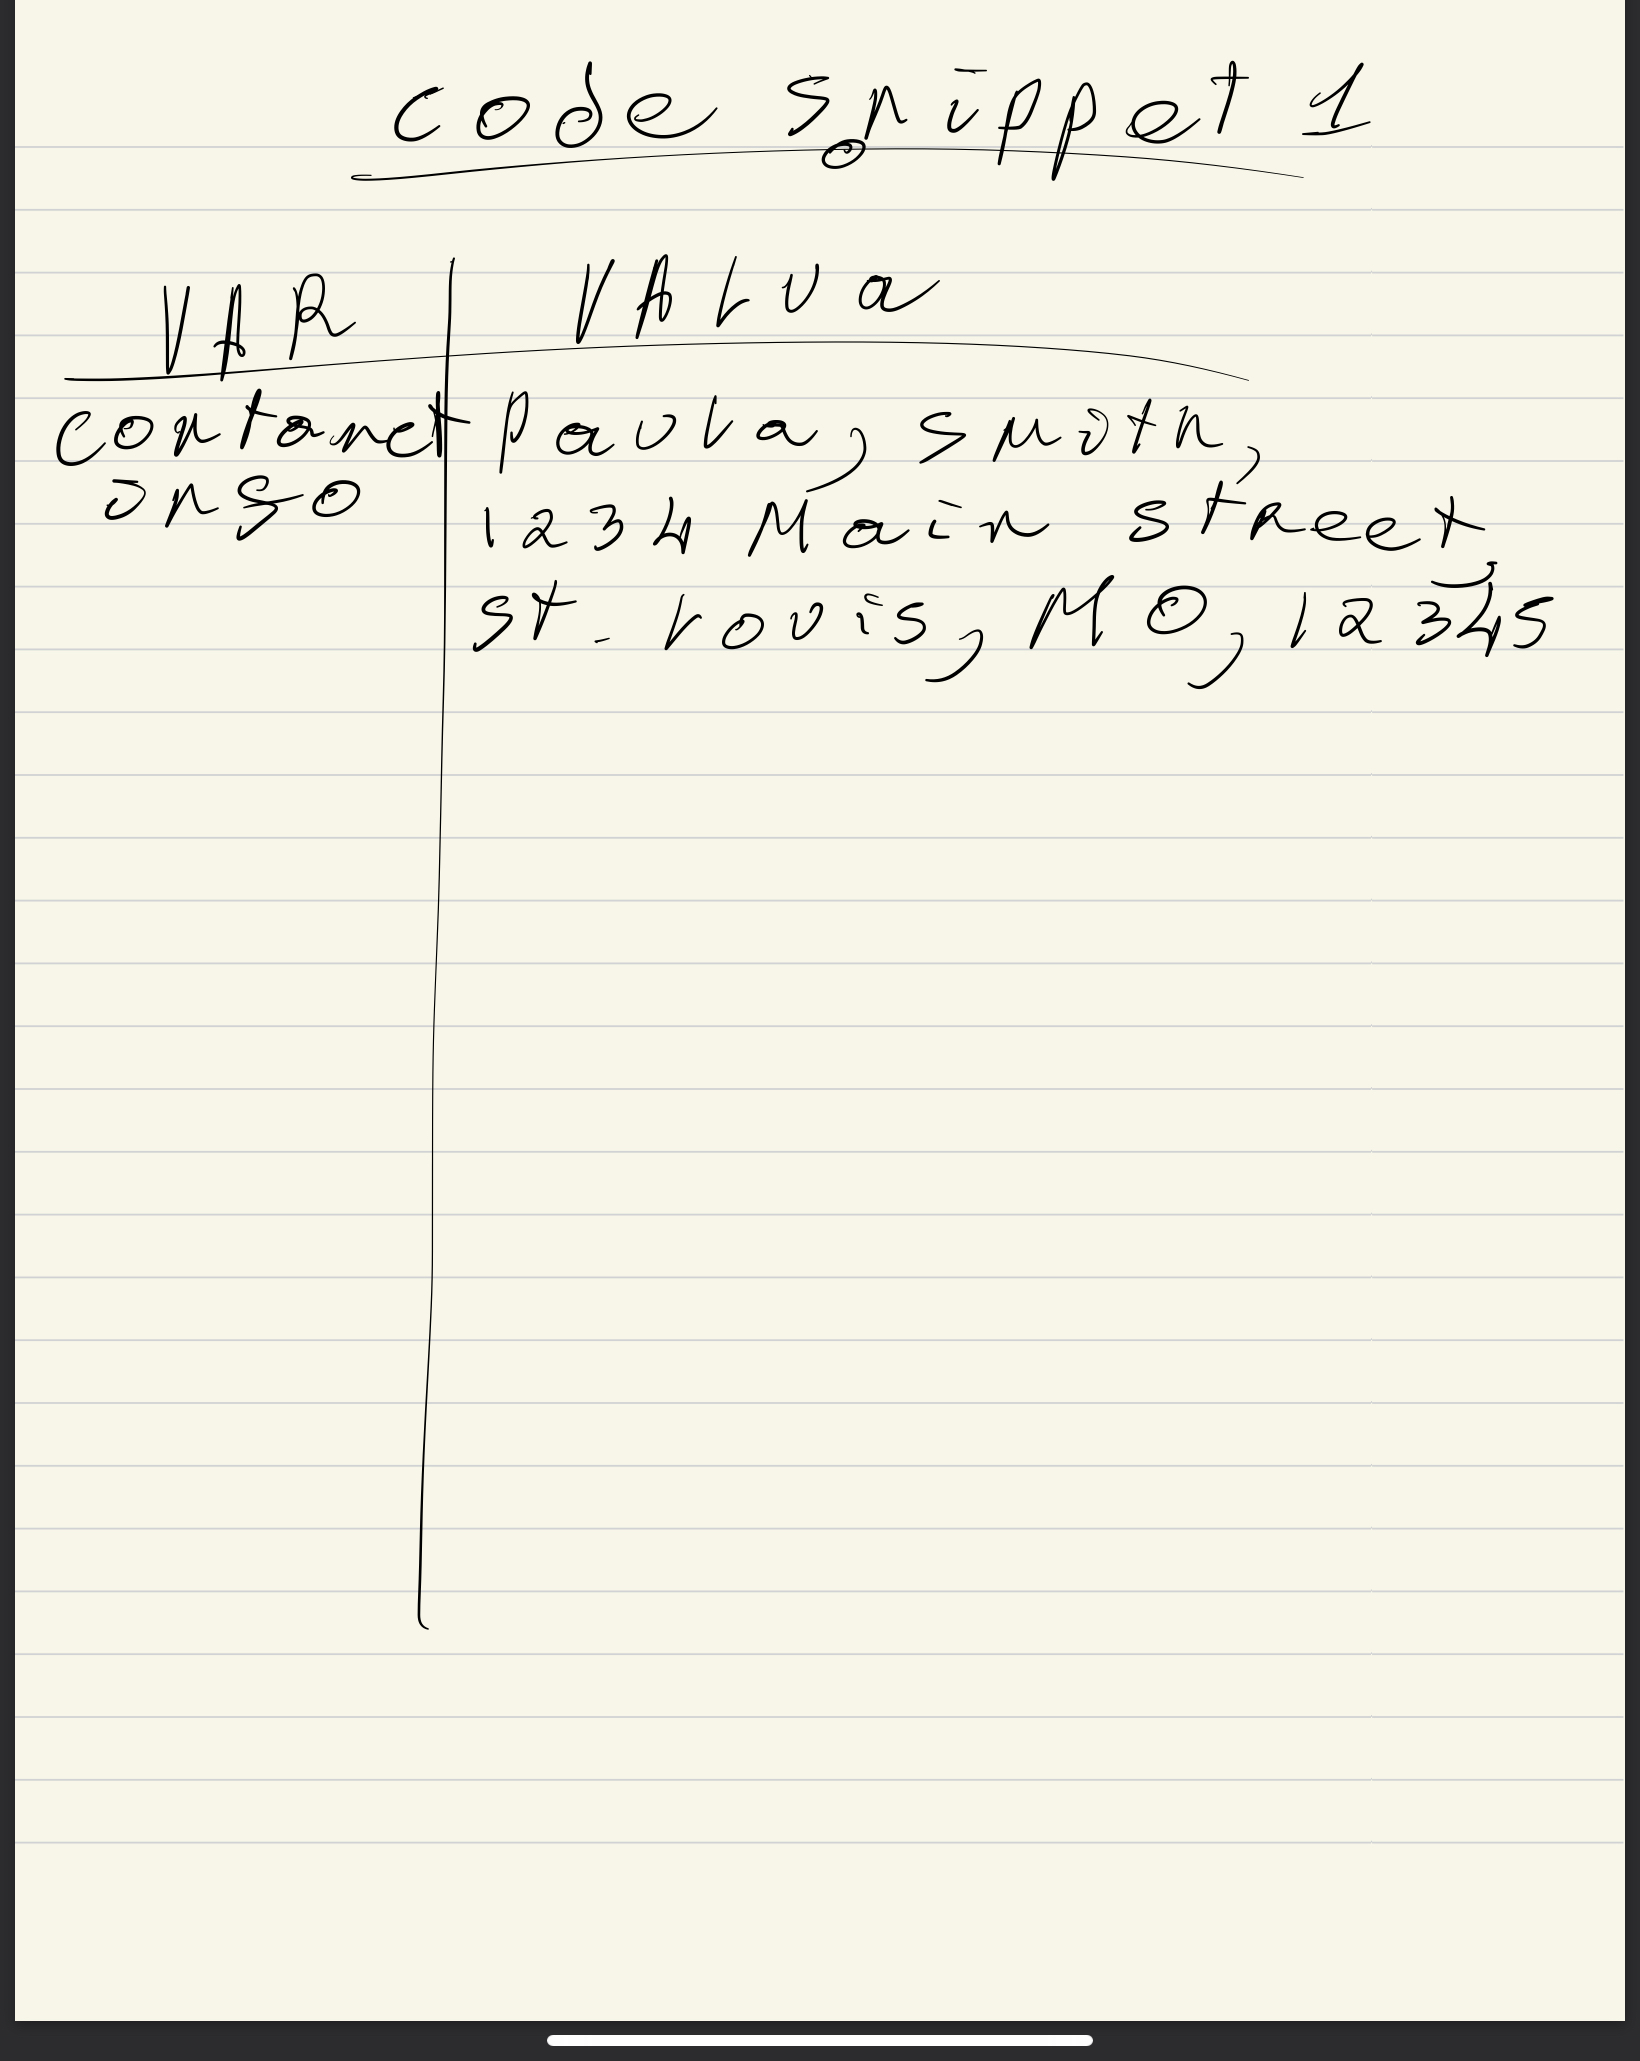 code snippet 1
VAR VALUe
contanct Paula, Smith,
info 1234 Main Street,
St. Louis, MO, 12345